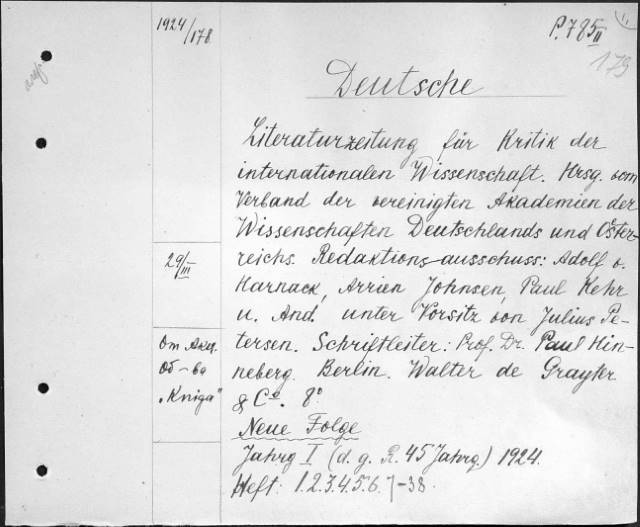 1924/178
P.785 II
179
Deutsche
Literaturzeitung für Kritik der
internationalen Wissenschaft. Hrsg. vom
Verband der vereinigten Akademien der
Wissenschaften Deutschlands und Öster-
reichs. Redaktions-ausschuss: Adolf v.
Harnack, Arrien Johnsen, Paul Kehr
u. And. unter Vorsitz von Julius Pe-
tersen. Schriftleiter: Prof. Dr. Paul Hin-
neberg. Berlin. Walter de Grayter
& Co. 8°
Neue Folge
Jahrg I (d. g. R. 45 Jahrg.) 1924.
Heft: 1.2.3.4.5.6.7-38.
29/III
От Акц.
Об-ва
"Kniga"